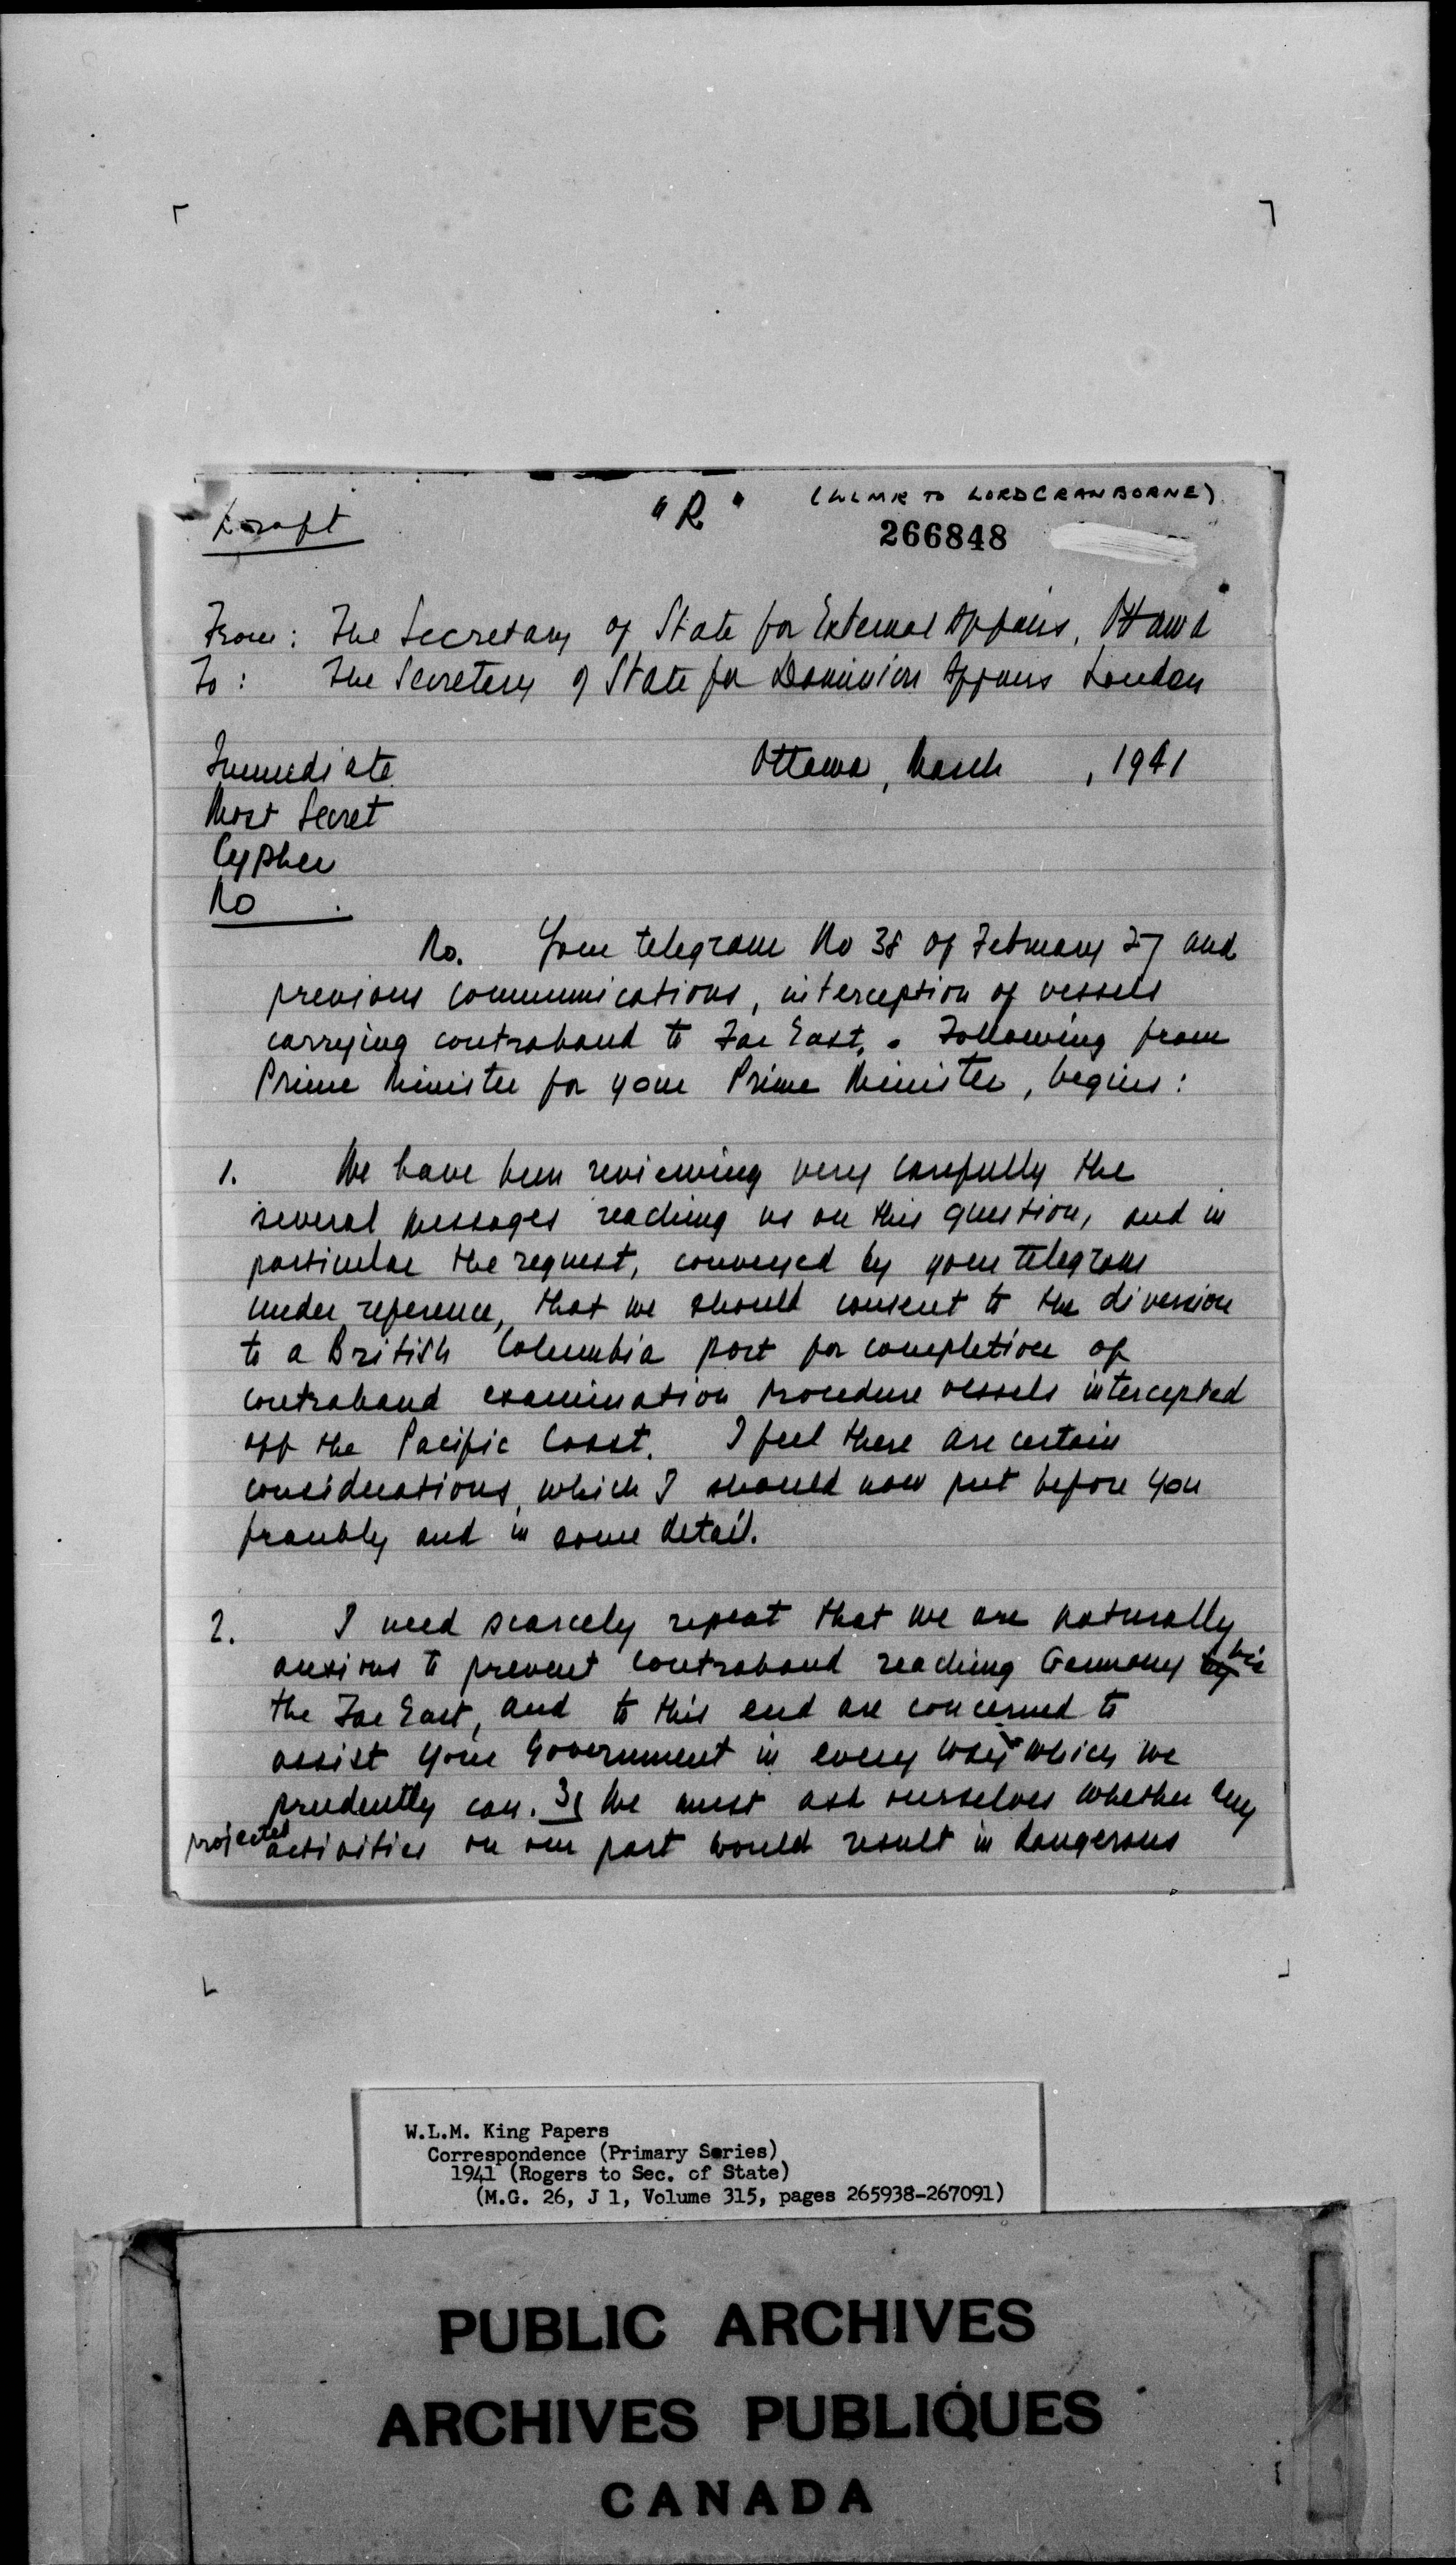 Draft
"R"
(WLMK TO LORD CRANBORNE)
266848
From: The Secretary of State for External Affairs, Ottawa
To: The Secretary of State for Dominion Affairs London
Immediate
Ottawa, March , 1941
Most Secret
Cypher
No .
No. Your telegram No 38 of February 27 and
previous communications, interception of vessels
carrying contraband to Far East. Following from
Prime Minister for your Prime Minister, begins:
1. We have been reviewing very carefully the
several messages reaching us on this question, and in
particular the request, conveyed by your telegram
under reference, that we should consent to the diversion
to a British Columbia port for completion of
contraband examination procedure vessels intercepted
off the Pacific Coast. I feel there are certain
considerations, which I should now put before you
frankly and in some detail.
2. I need scarcely repeat that we are naturally
anxious to prevent contraband reaching Germany by via
the Far East, and to this end are concerned to
assist your Government in every way which we
prudently can. 3] We must ask ourselves whether any
projected activities on our part would result in dangerous
W.L.M. King Papers
Correspondence (Primary Series)
1941 (Rogers to Sec. of State)
(M.G. 26, J 1, Volume 315, pages 265938-267091)
PUBLIC ARCHIVES
ARCHIVES PUBLIQUES
CANADA